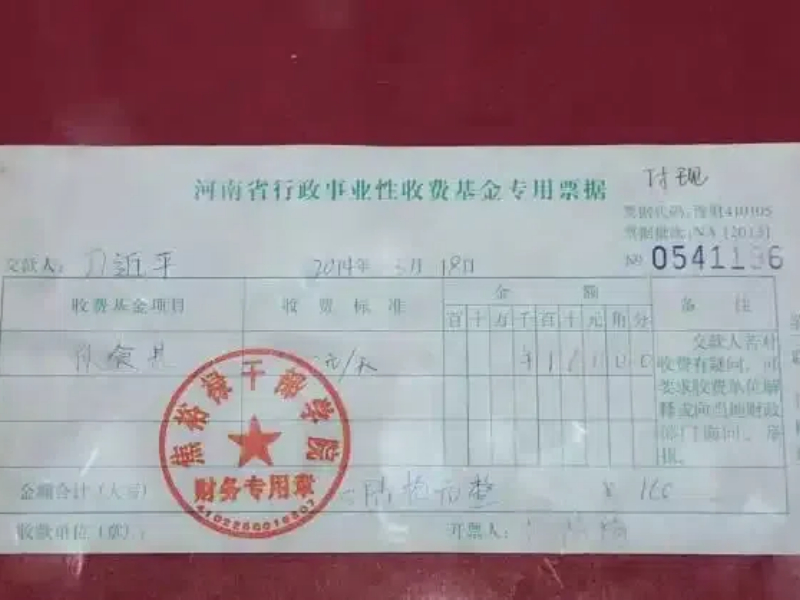 河南省行政事业性收费基金专用票据
付现
票据代码:豫财410105
票据批次:NA[2013]
交款人: 习近平 2014年 3月 18日
№ 05411
收费基金项目 收费标准 金额 备注
百 十 万 千 百 十 元 角 分
元/天 ¥ 1 6 0 0 0
交款人若对
收费有疑问,可
要求收费单位解
释或向当地财政
部门
焦裕禄干部学院
财务专用章
金额合计(大写) 陆拾元整 ¥ 160
收款单位(章): 开票人: